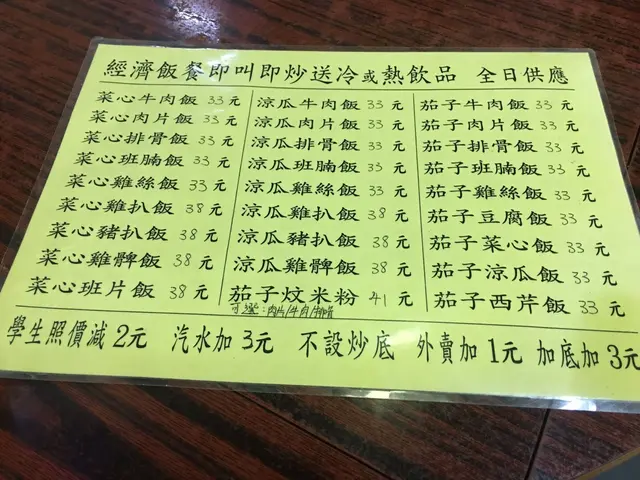 經濟飯餐即叫即炒送冷或熱飲品 全日供應
菜心牛肉飯 33 元
菜心肉片飯 33 元
菜心排骨飯 33 元
菜心班腩飯 33 元
菜心雞絲飯 33 元
菜心雞扒飯 38 元
菜心豬扒飯 38 元
菜心雞髀飯 38 元
菜心班片飯 38 元
涼瓜牛肉飯 33 元
涼瓜肉片飯 33 元
涼瓜排骨飯 33 元
涼瓜班腩飯 33 元
涼瓜雞絲飯 33 元
涼瓜雞扒飯 38 元
涼瓜豬扒飯 38 元
涼瓜雞髀飯 38 元
茄子炆米粉 41 元
可選:肉片/牛肉/排骨
茄子牛肉飯 33 元
茄子肉片飯 33 元
茄子排骨飯 33 元
茄子班腩飯 33 元
茄子雞絲飯 33 元
茄子豆腐飯 33 元
茄子菜心飯 33 元
茄子涼瓜飯 33 元
茄子西芹飯 33 元
學生照價減 2元 汽水加 3元 不設炒底 外賣加 1元 加底加 3元